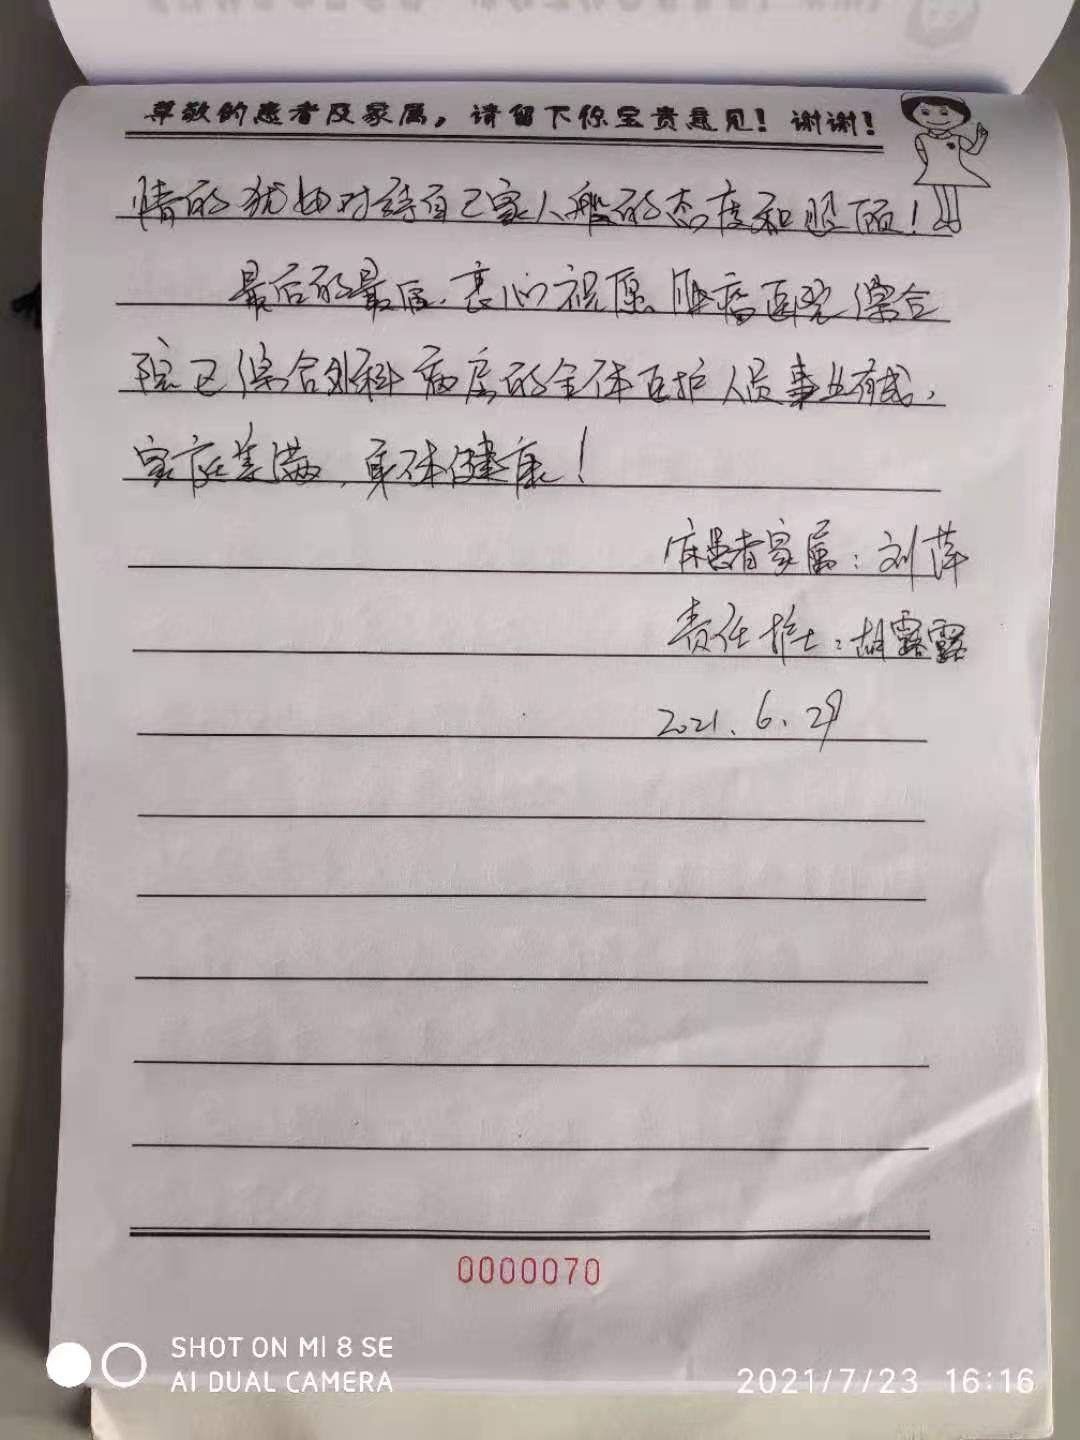 尊敬的患者及家属，请留下你宝贵意见！谢谢！
情的犹如对待自己家人般的态度和照顾！
最后的最后，衷心祝愿肿瘤医院综合
院区综合外科病房的全体医护人员事业有成，
家庭美满，身体健康！
床患者家属：刘萍
责任护士：胡露露
2021.6.29
0000070
SHOT ON MI 8 SE
AI DUAL CAMERA
2021/7/23 16:16